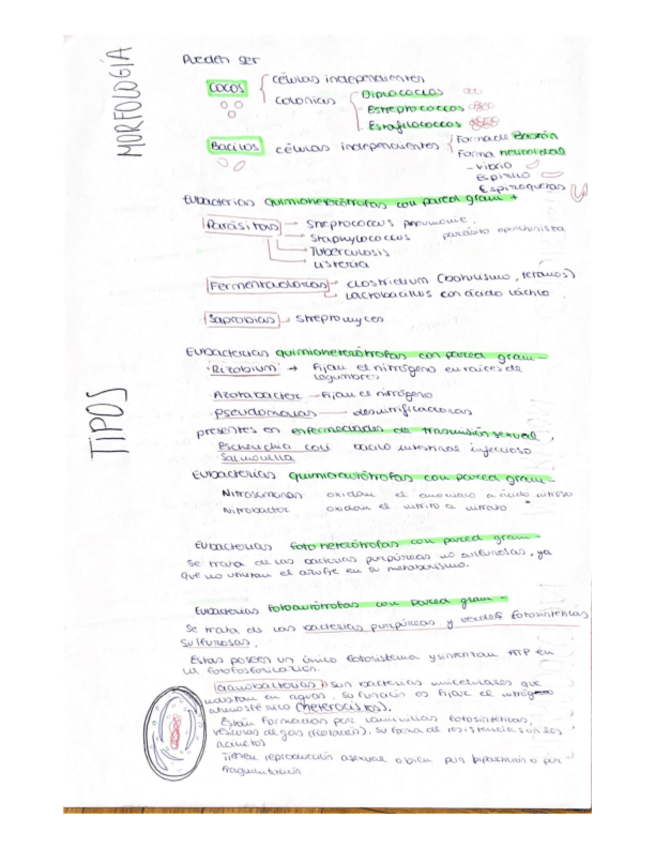 MORFOLOGÍA
Pueden ser
Cocos
células independientes
colonias
Diplococcos
Estreptococcos
Estafilococcos
Bacilos
células independientes
Forma de Bastón
Forma helicoidal
- vibrio
Espirilo
Espiroquetas
Eubacterias quimioheterótrofas con pared gram +
Parásitas
Streptococcus pneumonie
Staphylococcus parásito oportunista
Tuberculosis
Listeria
Fermentadoras → Clostridium (botulismo, tétanos)
Lactobacillus con ácido láctico
Saprobias → Streptomyces
TIPOS
Eubacterias quimioheterótrofas con pared gram -
· Rizobium → Fijan el nitrógeno en raíces de
legumbres
· Azotobacter - Fijan el nitrógeno
· Pseudomonas desnitrificadoras
presentes en enfermedades de trasmisión sexual,
Escherichia coli bacilo intestinal
Salmonella
Eubacterias quimioautótrofas con pared gram -
Nitrosomonas oxidan el amoniaco a ácido nitroso
Nitrobacter oxidan el nitrito a nitrato
Eubacterias fotoheterótrofas con pared gram -
Se trata de las bacterias purpúreas no sulfurosas, ya
que no utilizan el azufre en su metabolismo.
Eubacterias fotoautótrofas con pared gram -
Se trata de las bacterias purpúreas y verdes fotosintéticas
sulfurosas.
Estas poseen un único fotosistema y sintetizan ATP en
la fotofosforilación.
Cianobacterias: son bacterias unicelulares que
en aguas. Su función es fijar el nitrógeno
atmosférico (heterocistos).
Están formadas por laminillas fotosintéticas,
vesículas de gas (flotación), su forma de resistencia son los
acinetos
Tienen reproducción asexual o bien por bipartición o por
fragmentación